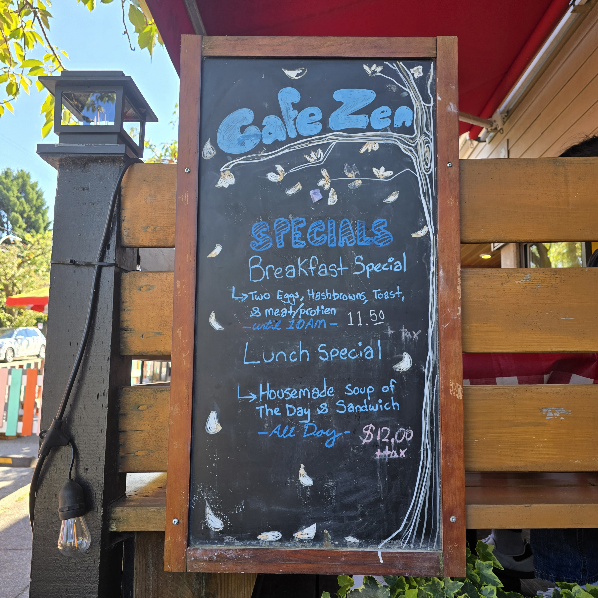 Cafe Zen
SPECIALS
Breakfast Special
Two Eggs, Hashbrowns, Toast,
& meat/protien 11.50
- until 10AM - +tax
Lunch Special
Housemade soup of
The Day & Sandwich
- All Day - $12.00
+tax